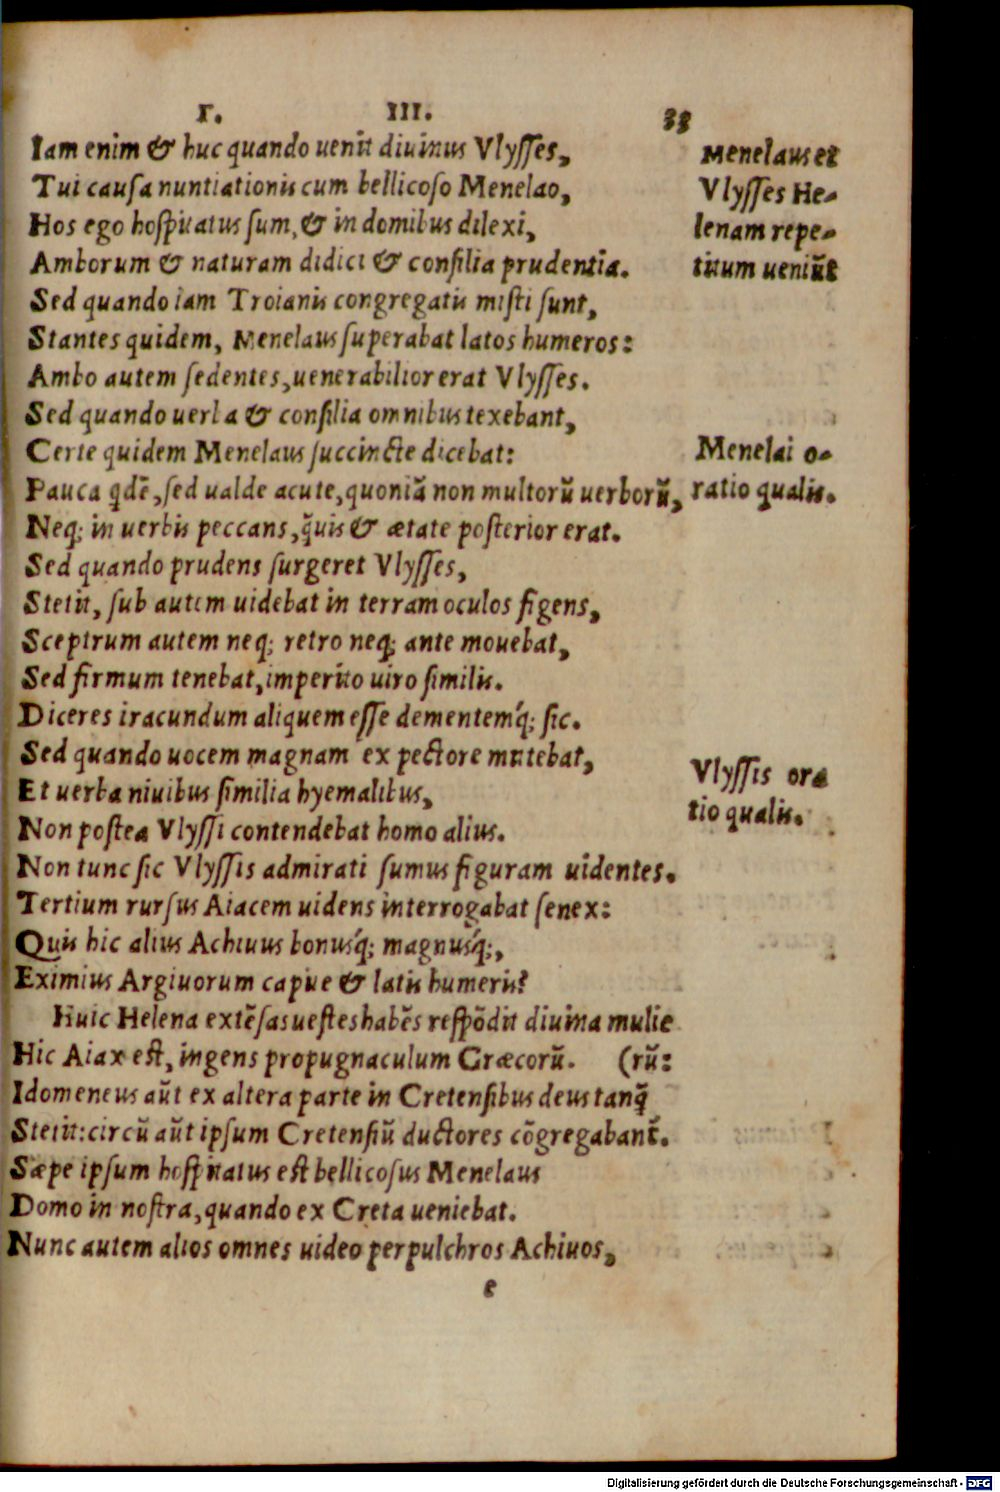 Γ. III. 33
Iam enim & huc quando uenit diuinus Vlysses,
Tui causa nuntiationis cum bellicoso Menelao,
Hos ego hospitatus sum, & in domibus dilexi,
Amborum & naturam didici & consilia prudentia.
Sed quando iam Troianis congregatis misti sunt,
Stantes quidem, Menelaus superabat latos humeros:
Ambo autem sedentes, uenerabilior erat Vlysses.
Sed quando uerba & consilia omnibus texebant,
Certe quidem Menelaus succincte dicebat:
Pauca qdẽ, sed ualde acute, quoniã non multorũ uerborũ,
Neq; in uerbis peccans, q̃uis & ætate posterior erat.
Sed quando prudens surgeret Vlysses,
Stetit, sub autem uidebat in terram oculos figens,
Sceptrum autem neq; retro neq; ante mouebat,
Sed firmum tenebat, imperito uiro similis.
Diceres iracundum aliquem esse dementemq́; sic.
Sed quando uocem magnam ex pectore mittebat,
Et uerba niuibus similia hyemalibus,
Non postea Vlyssi contendebat homo alius.
Non tunc sic Vlyssis admirati sumus figuram uidentes.
Tertium rursus Aiacem uidens interrogabat senex:
Quis hic alius Achiuus bonusq́; magnusq́;,
Eximius Argiuorum capite & latis humeris?
Huic Helena extẽsas uestes habẽs respõdit diuina mulie
Hic Aiax est, ingens propugnaculum Græcorũ. (rũ:
Idomeneus aũt ex altera parte in Cretensibus deus tanq̃
Stetit: circũ aũt ipsum Cretensiũ ductores cõgregabant̃.
Sæpe ipsum hospitatus est bellicosus Menelaus
Domo in nostra, quando ex Creta ueniebat.
Nunc autem alios omnes uideo perpulchros Achiuos,
e
Menelaus et
Vlysses He-
lenam repe-
titum ueniũt
Menelai o-
ratio qualis.
Vlyssis ora
tio qualis.
Digitalisierung gefördert durch die Deutsche Forschungsgemeinschaft - DFG